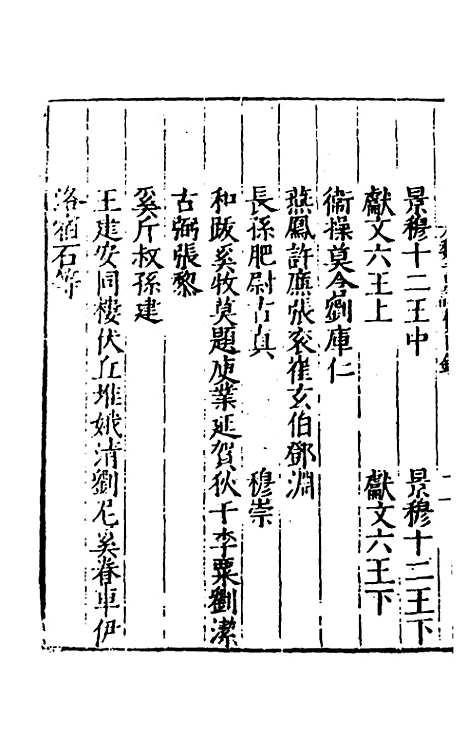 景穆十二王中 景穆十二王下
獻文六王上 獻文六王下
衞操莫含劉庫仁
燕鳳許謙張袞崔玄伯鄧淵
長孫肥尉古真 穆崇
和跋奚牧莫題庾業延賀狄干李栗劉潔
古弼張黎
奚斤叔孫建
王建安同樓伏丘堆娥清劉尼奚眷車伊
洛宿石等